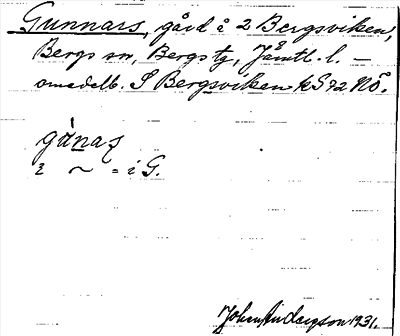 Gunnars, gård å 2 Bergsviken,
Bergs sn, Bergs tg, Jämtl. l. –
omedelb. S Bergsviken kS72NÖ.
gánaṣ
i ~ = i G.
John Anderson 1931.